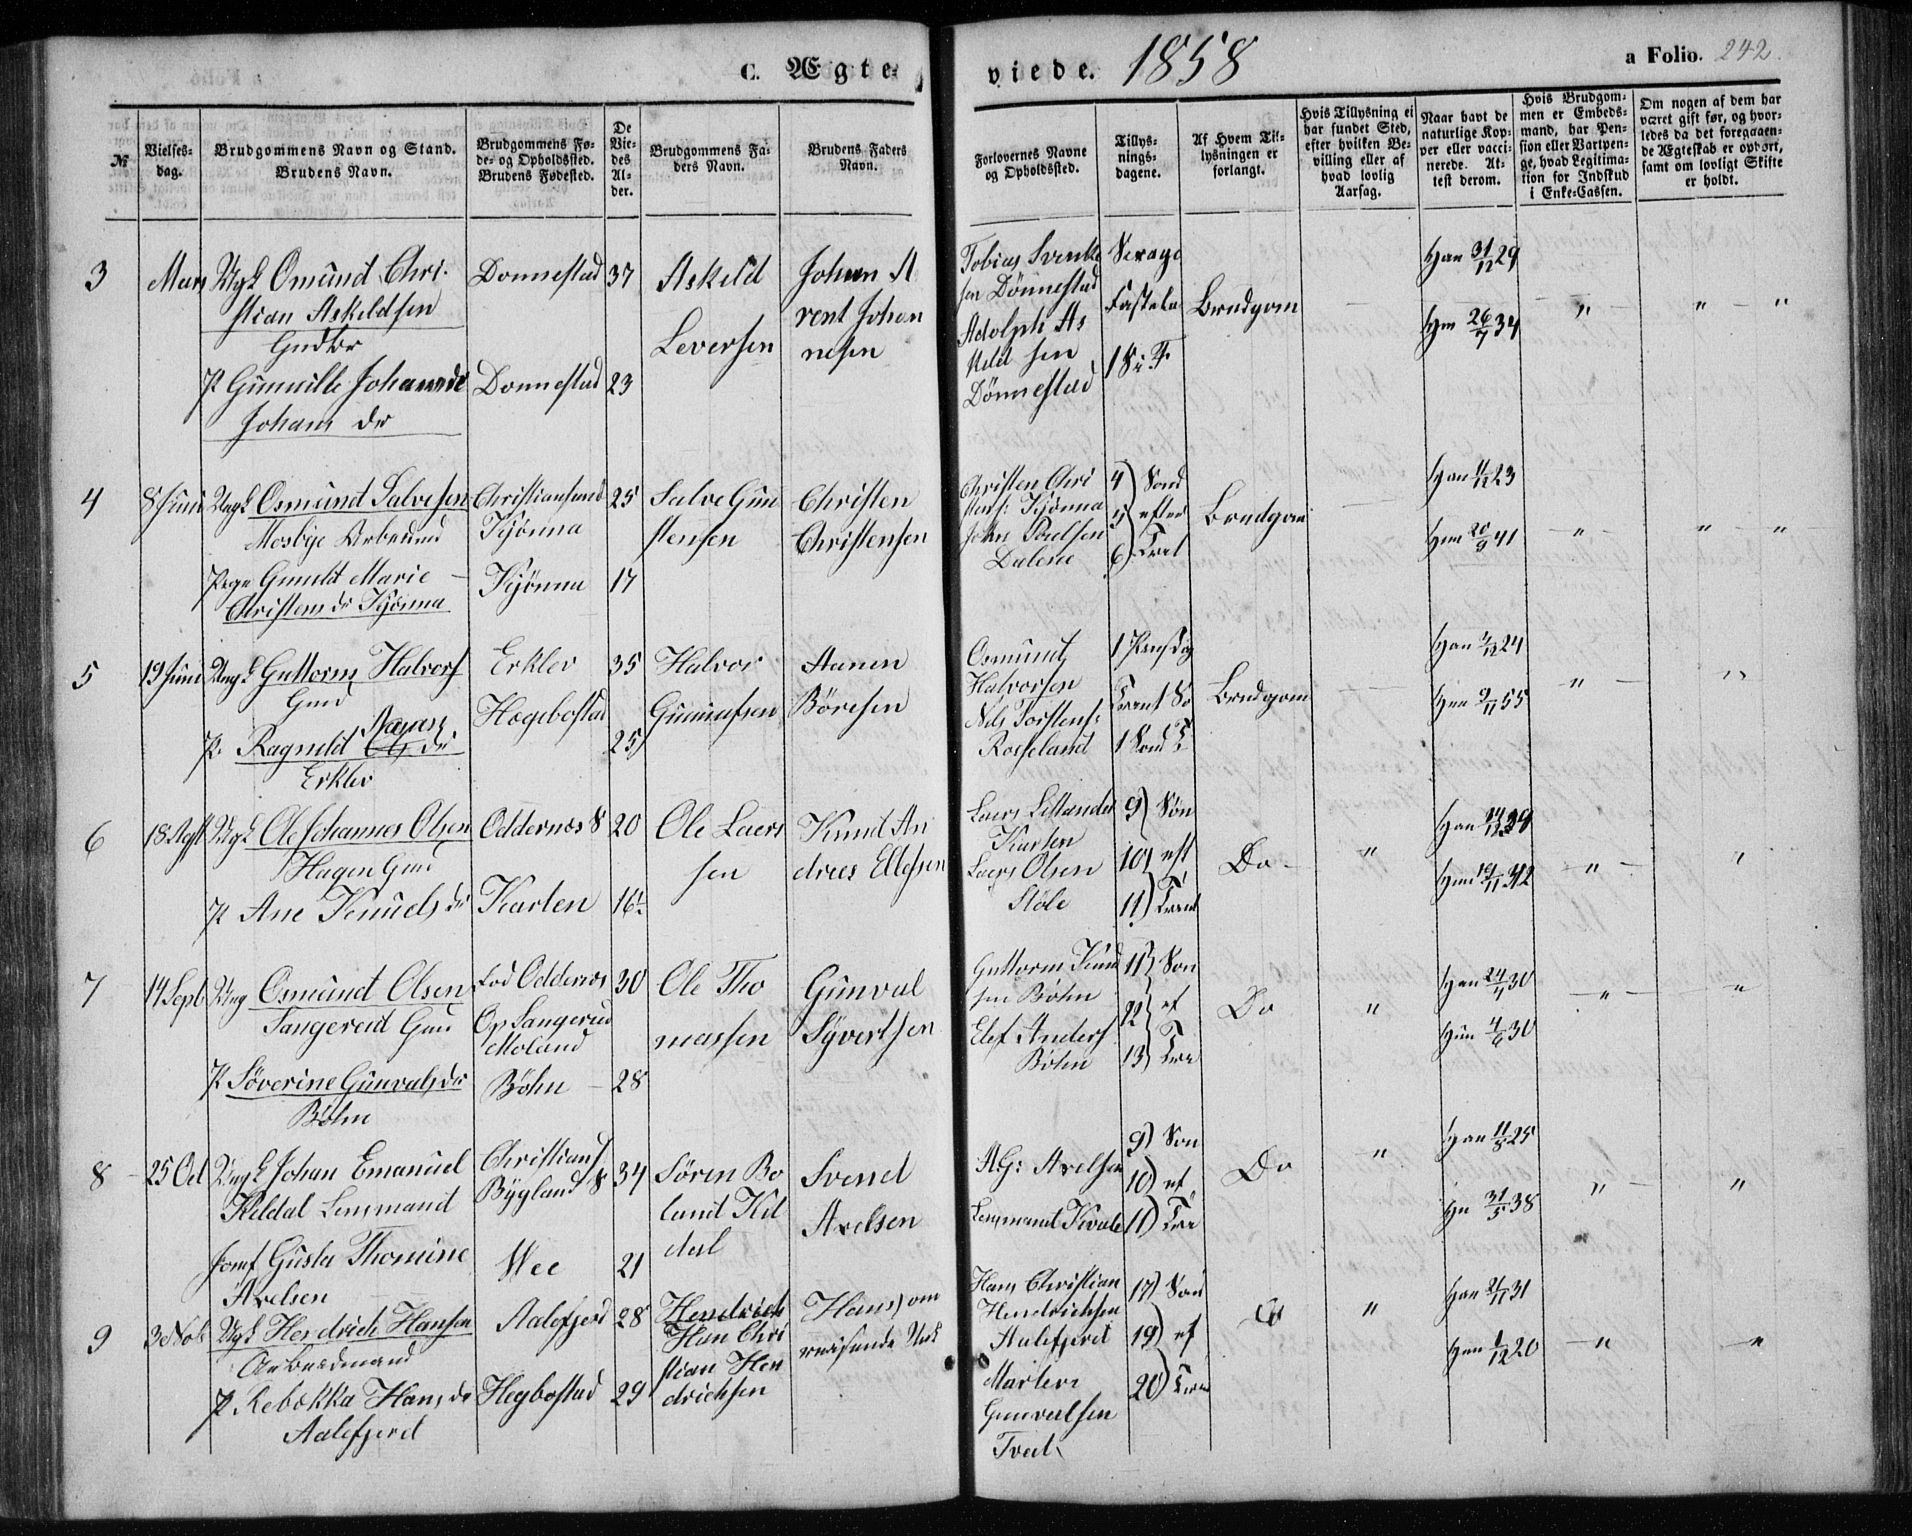 C. Ægteviede. 1858
a Folio. 242.
№
Vielses-
dag.
Brudgommens Navn og Stand.
Brudens Navn.
Brudgommens Fø-
de- og Opholdssted.
Brudens Fødested.
De
Vie-
des
Al-
der.
Brudgommens Fa-
ders Navn.
Brudens Faders
Navn.
Forlovernes Navne
og Opholdssted.
Tillys-
nings-
dagene.
Af Hvem Til-
lysningen er
forlangt.
Hvis Tillysning ei
har fundet Sted,
efter hvilken Be-
villing eller af
hvad lovlig
Aarsag.
Naar havt de
naturlige Kop-
per eller vacci-
nerede. At-
test derom.
Hvis Brudgom-
men er Embeds-
mand, har Pen-
sion eller Vartpen-
ge, hvad Legitima-
tion for Indskud
i Enke-Cassen.
Om nogen af dem har
været gift før, og hvor-
ledes da det foregaaen-
de Ægteskab er ophørt,
samt om lovligt Skifte
er holdt.
3
Mars
Ungk Omund Chri-
stian Askeldsen
Gudbr
P Gunnille Johannede
Johans dr
Donnestad
Donnestad
37
23
Askeld
Leversen
Johan A
rent Johan
nesen
Tobias Svenke
sen Dönnestad
Adolph As
keld sen
Dönnestad
Fastela
1 S i F
Brudgom
Han 31/12 29
Hun 26/7 34
" "
"
4
8 Juni
Ungk Osmund Salvesen
Mosbye Arbmd
Pige Gunild Marie
Christens dr Kjönna
Christiansand
Kjönna
Kjönna
25
17
Salve Gun
stensen
Christen
Christensen
Christen Chri
stens: Kjönna
John Poulsen
Dalene
4) Sond
5) efter
6) Tret
Brudgom
Han 11/12 23
Hun 20/9 41
" " "
5
19 Juni
Ungk Guttorm Halvors
Gmd
P. Ragnild Aanens dr
Erklev
Erklev
Hægebostad
35
25
Halvor
Gunnufsen
Aanen
Böresen
Osmund
Halvorsen
Nils Torstens:
Rosseland
1 Pensdig
Trent So
1 Sond T
Brudgom
Han 2/12 24
Hun 9/11 55
" "
6
18 Agst
Ungk Ole Johannes Olsen
Hagen Gmd
P Ane Knuds dr
Oddernæs S
Karten
20
16½
Ole Laers
sen
Knud An
dres Ellefsen
Laers Lillander
Karten
Laers Olsen
Stöle
9) Søn
10) eft
11) Trent
Do
"
Han 14/12 39
Hun 19/11 42
" "
7
14 Sept
Ung Osmund Olsen
Sangereid Gmd
P Söverine Gunvalds dr
Böhn
Fød Oddernæs
Op Sangereid
Moland
Böhn
30
28
Ole Tho
massen
Gunval
Syvertsen
Guttorm Knud
sen Böhn
Elef Anders
Böhn
11) Son
12) ef
13) Tre
Do
"
Han 24/7 30
Hun 4/6 30
" "
8
25 Oct
Ungk Johan Emanuel
Kildal Lensmand
Jomf Gusta Thomine
Axelsen
Christians
Bygland S
Wee
34
21
Sören Bo
lund Kil
dal
Svend
Axelsen
AG: Axelsen
Lensmand Kvale
9) Son
10) ef
11) Tre
Do
"
Han 11/8 25
Hu 31/5 38
" "
9
3 Nov
Ungk Hendrich Hansen
Arbeidmand
P Rebekka Hans dr
Aalefjerd
Aalefjerd
Hegbostad
28
29
Hendrich
Han Chri
stian Hen
drichsen
Hans, om
reisende Unk
Hans Christian
Hendrichsen
Aalefjerd
Marten
Gunvalsen
Tveit
17) Son
19) ef
20) Tre
Do
"
Han 2/11 31
Hun 1/12 20
" "